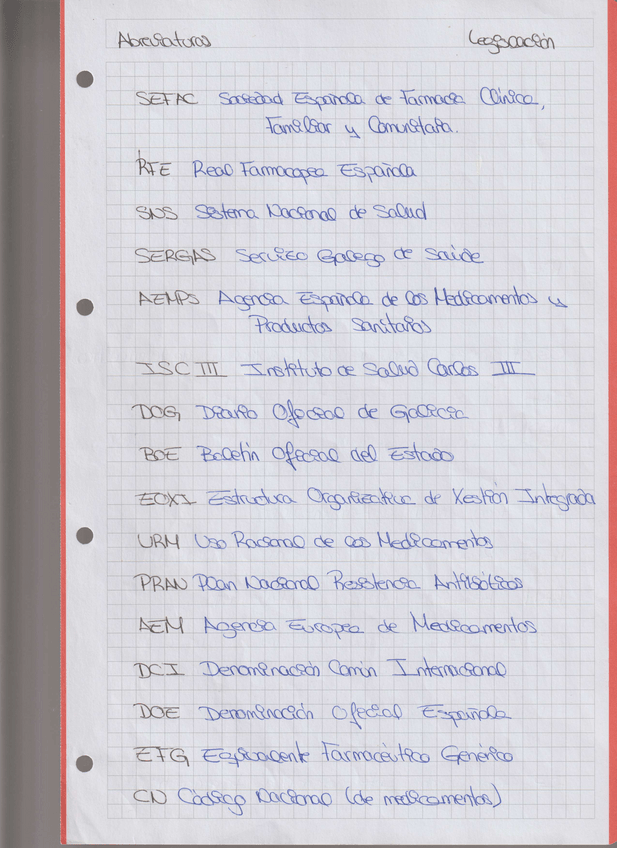 Abreviaturas Legislación
SEFAC Sociedad Española de Farmacia Clínica,
Familiar y Comunitaria.
RFE Real Farmacopea Española
SNS Sistema Nacional de Salud
SERGAS Servizo Galego de Saúde
AEMPS Agencia Española de los Medicamentos y
Productos Sanitarios
ISC III Instituto de Salud Carlos III
DOG Diario Oficial de Galicia
BOE Boletín Oficial del Estado
EOXI Estructura Organizativa de Xestión Integrada
URM Uso Racional de los Medicamentos
PRAN Plan Nacional Resistencia Antibióticos
AEM Agencia Europea de Medicamentos
DCI Denominación Común Internacional
DOE Denominación Oficial Española
EFG Equivalente Farmacéutico Genérico
CN Código Nacional (de medicamentos)